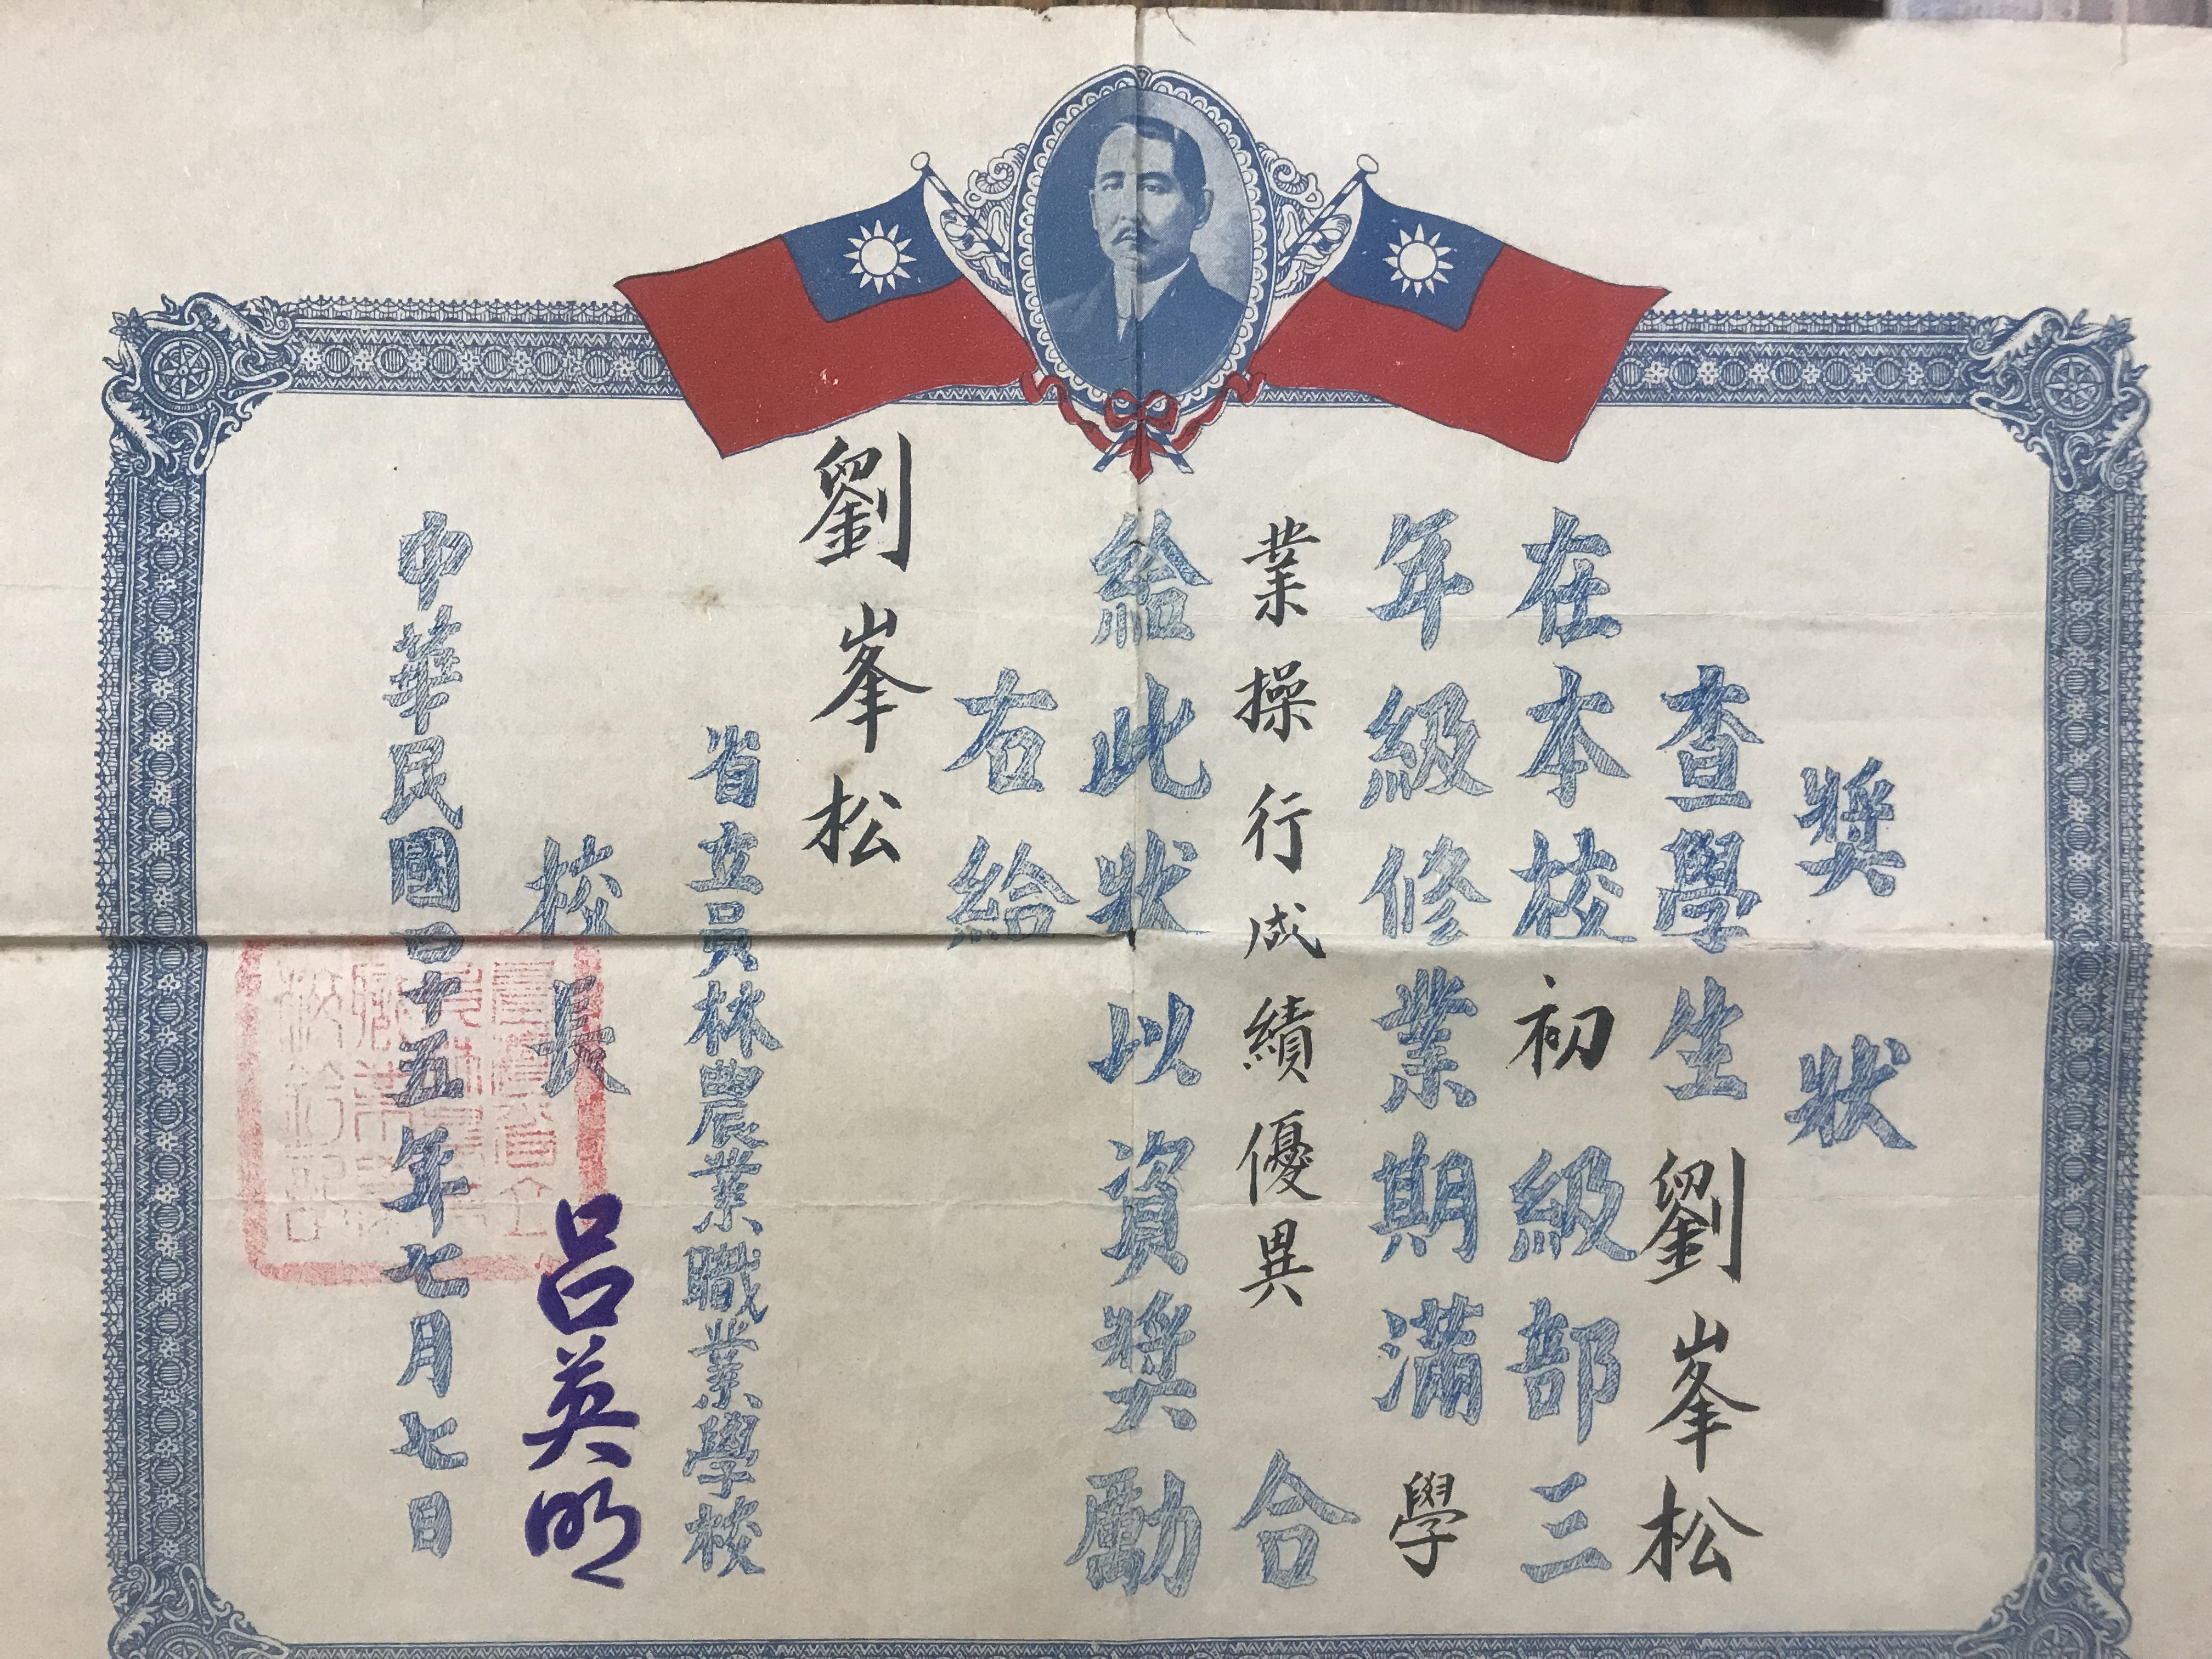 獎狀
查學生劉峯松
在本校初級部三
年級修業期滿學
業操行成績優異合
給此狀以資獎勵
右給
劉峯松
省立員林農業職業學校
校長呂英明
中華民國四十五年七月七日